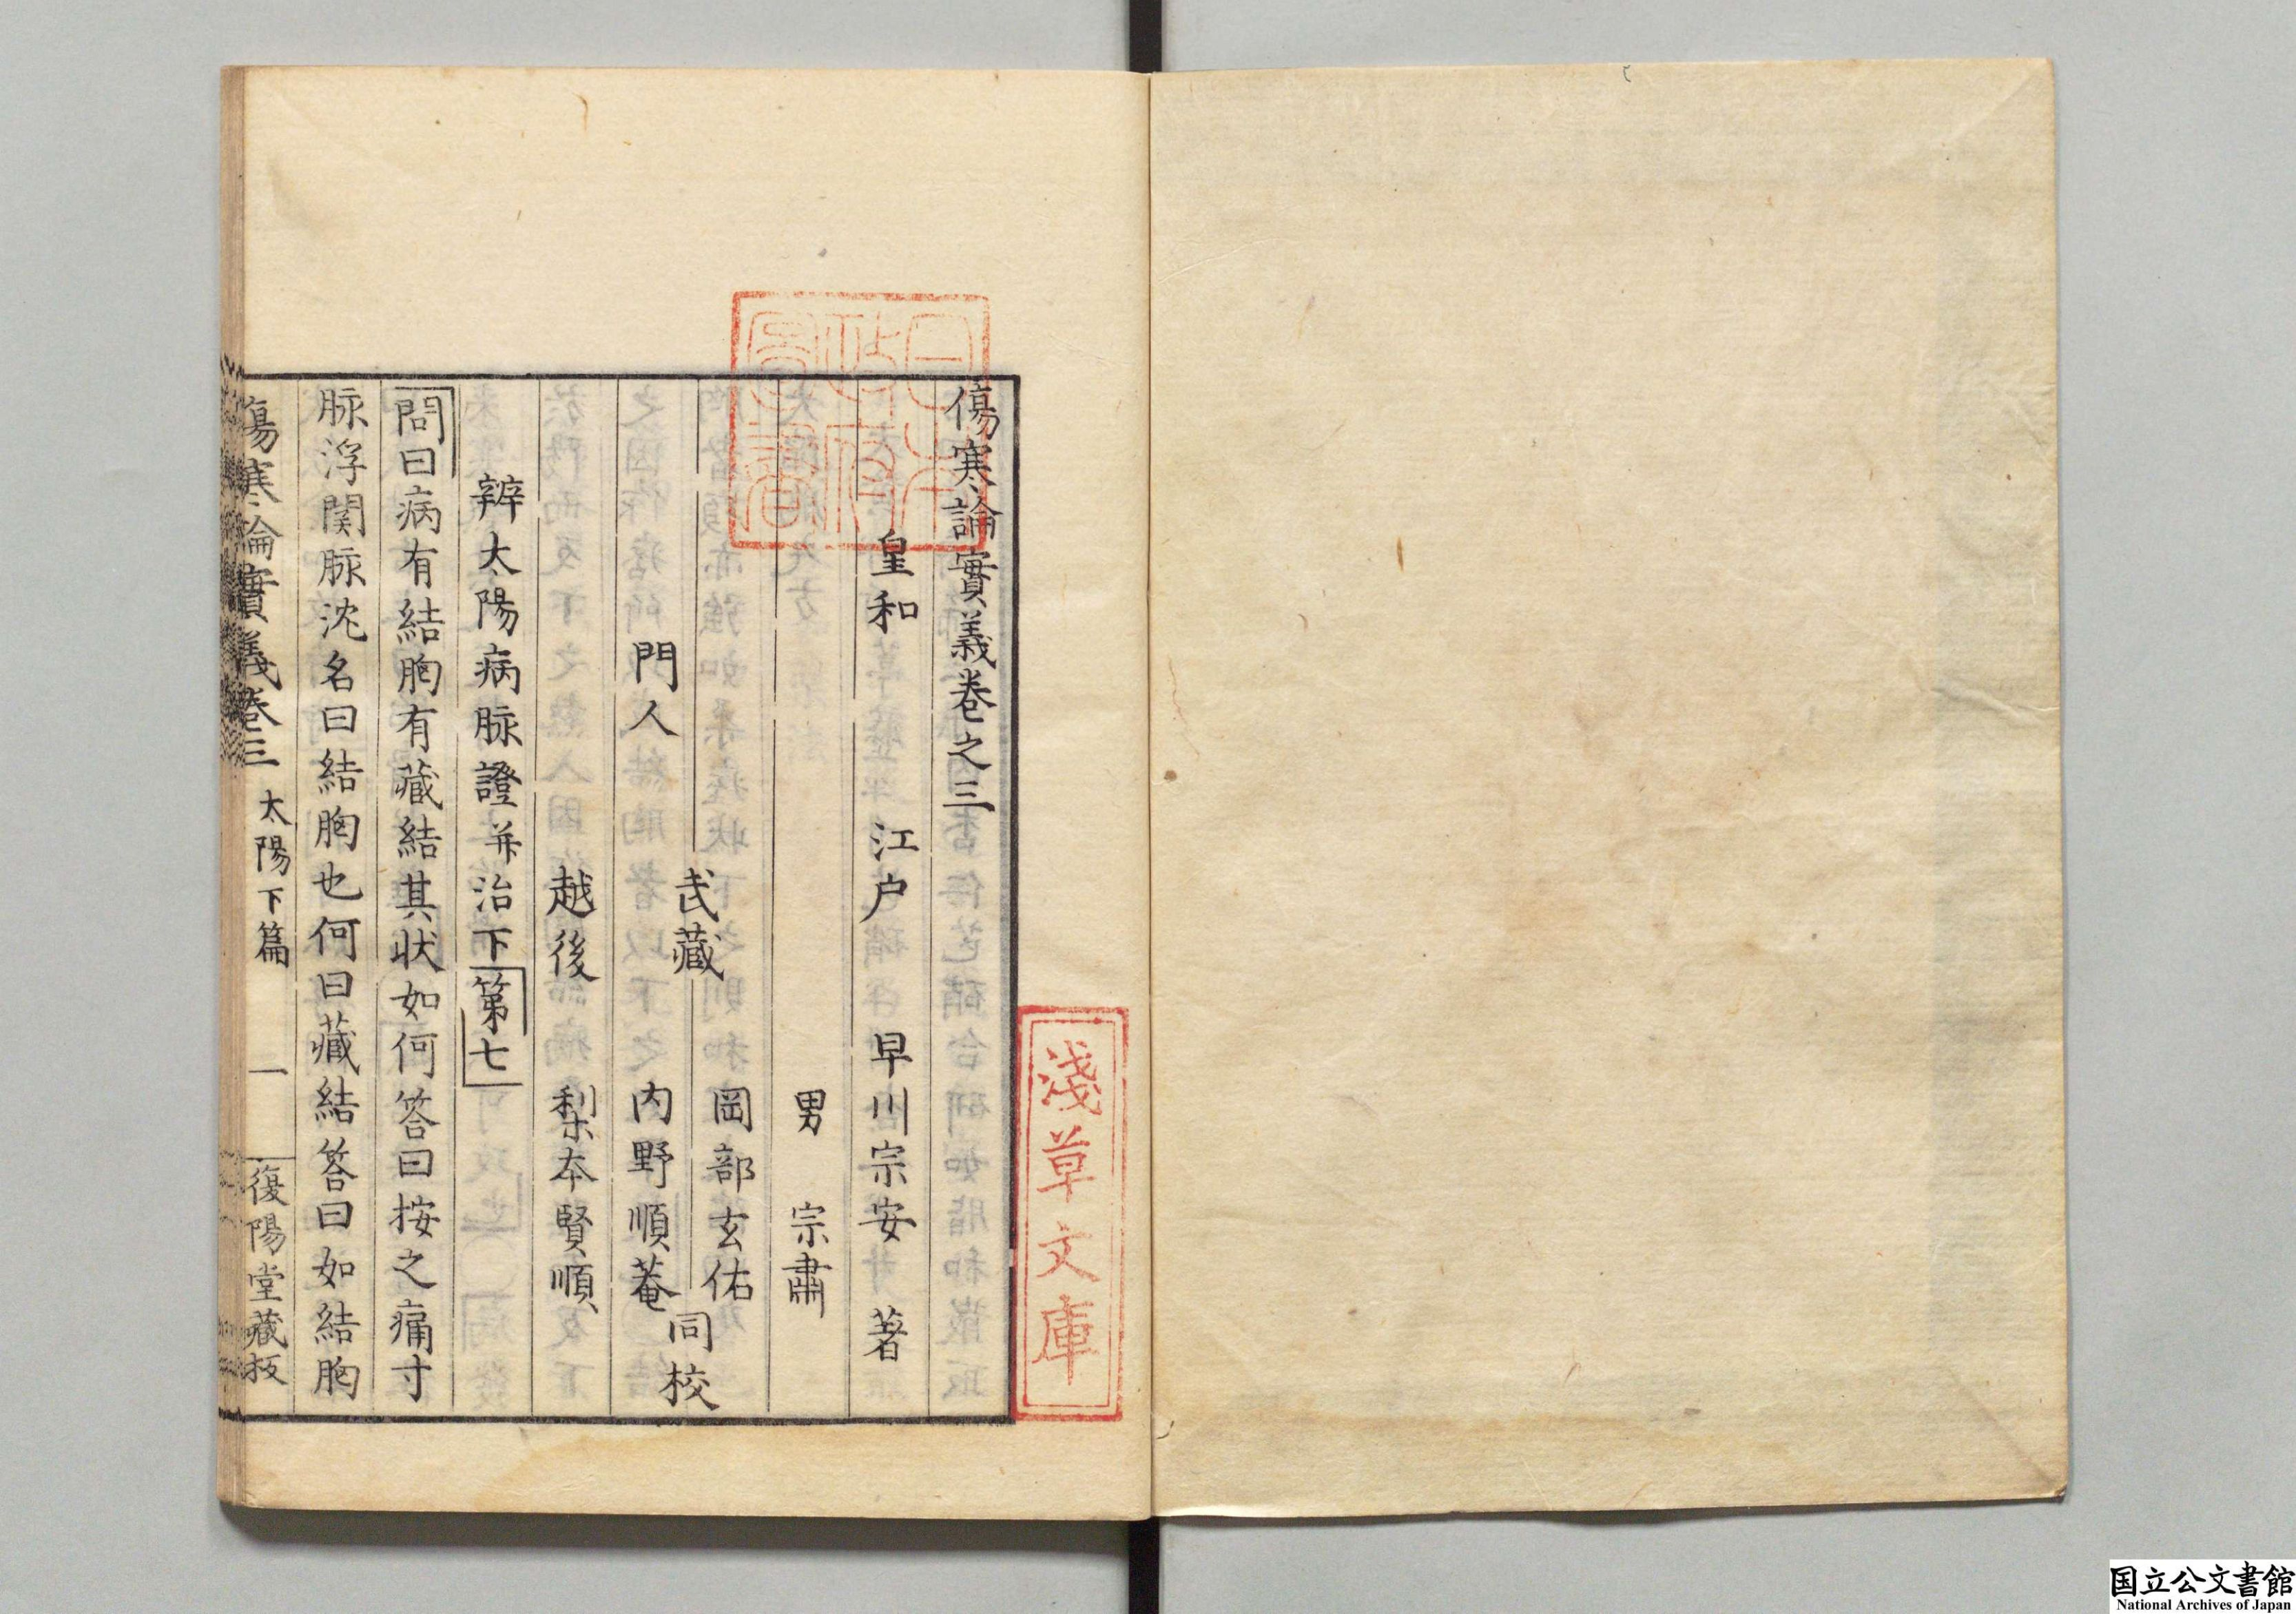 傷寒論實義卷之三
皇和 江户 早川宗安 著
男 宗肅
武藏 岡部玄佑
門人 内野順菴 同校
越後 梨本賢順
辨太陽病脉證并治下第七
問曰病有結胸有藏結其狀如何答曰按之痛寸
脉浮関脉沈名曰結胸也何曰藏結答曰如結胸
傷寒論實義卷三 太陽下篇 一 復陽堂藏板
淺草文庫
国立公文書館
National Archives of Japan